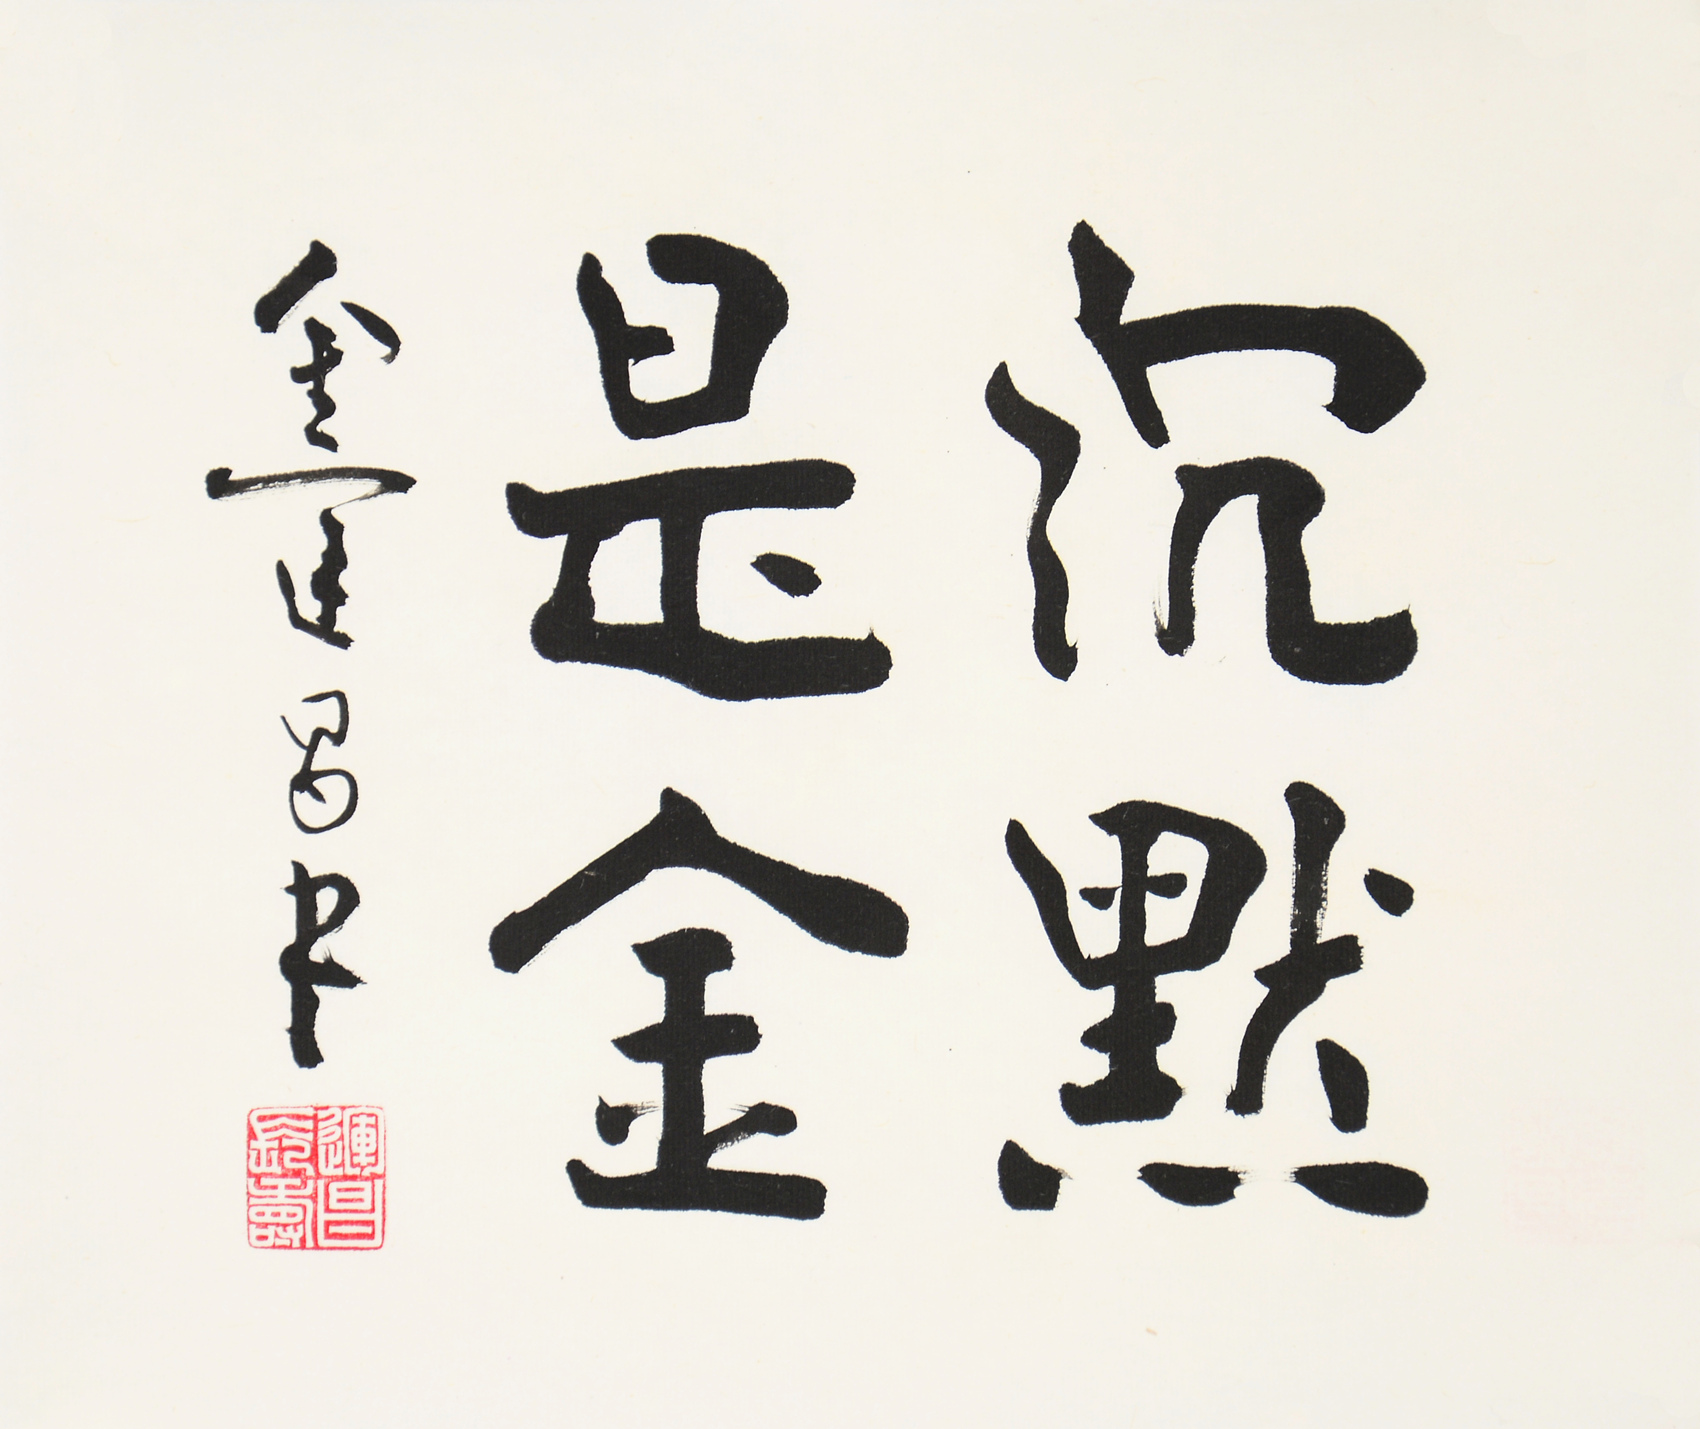 沉默
是金
金運昌書
運昌
長壽